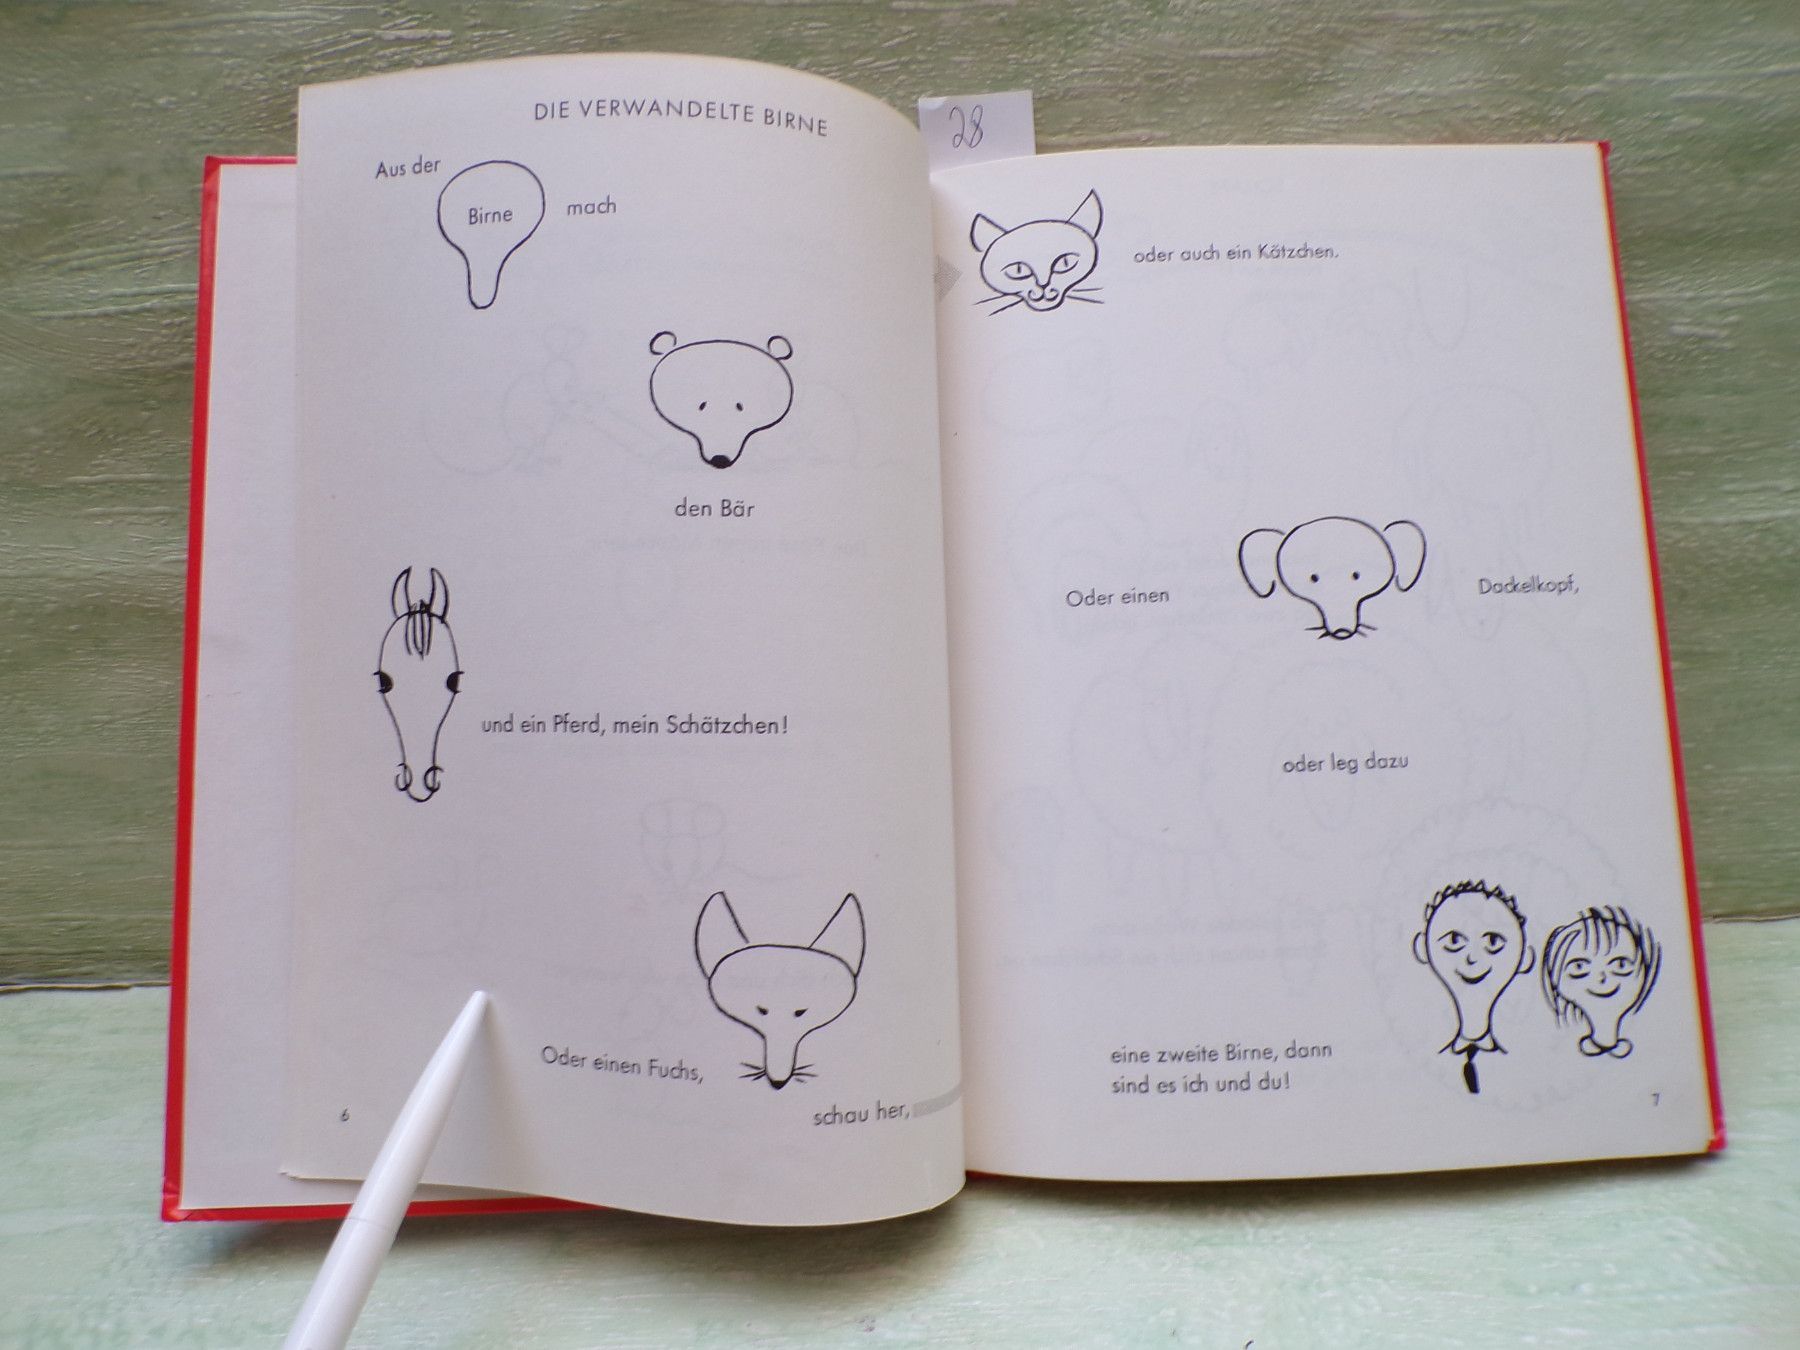 DIE VERWANDELTE BIRNE
Aus der
Birne
mach
den Bär
und ein Pferd, mein Schätzchen!
Oder einen Fuchs,
schau her,
6
28
oder auch ein Kätzchen.
Oder einen
Dackelkopf,
oder leg dazu
eine zweite Birne, dann
sind es ich und du!
7